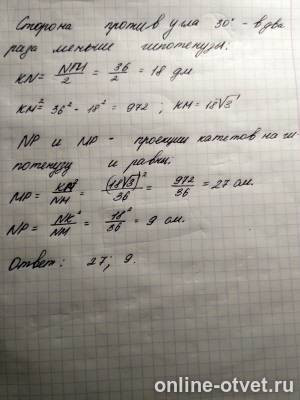 Сторона против угла 30° - в два
раза меньше гипотенузы.
KN = NM/2 = 36/2 = 18 дм
KM² = 36² - 18² = 972 ; KM = 18√3
NP и MP - проекции катетов на ги-
потенузу и равны:
MP = KM²/NM = (18√3)²/36 = 972/36 = 27 см.
NP = NK²/NM = 18²/36 = 9 см.
Ответ: 27; 9.
online-otvet.ru